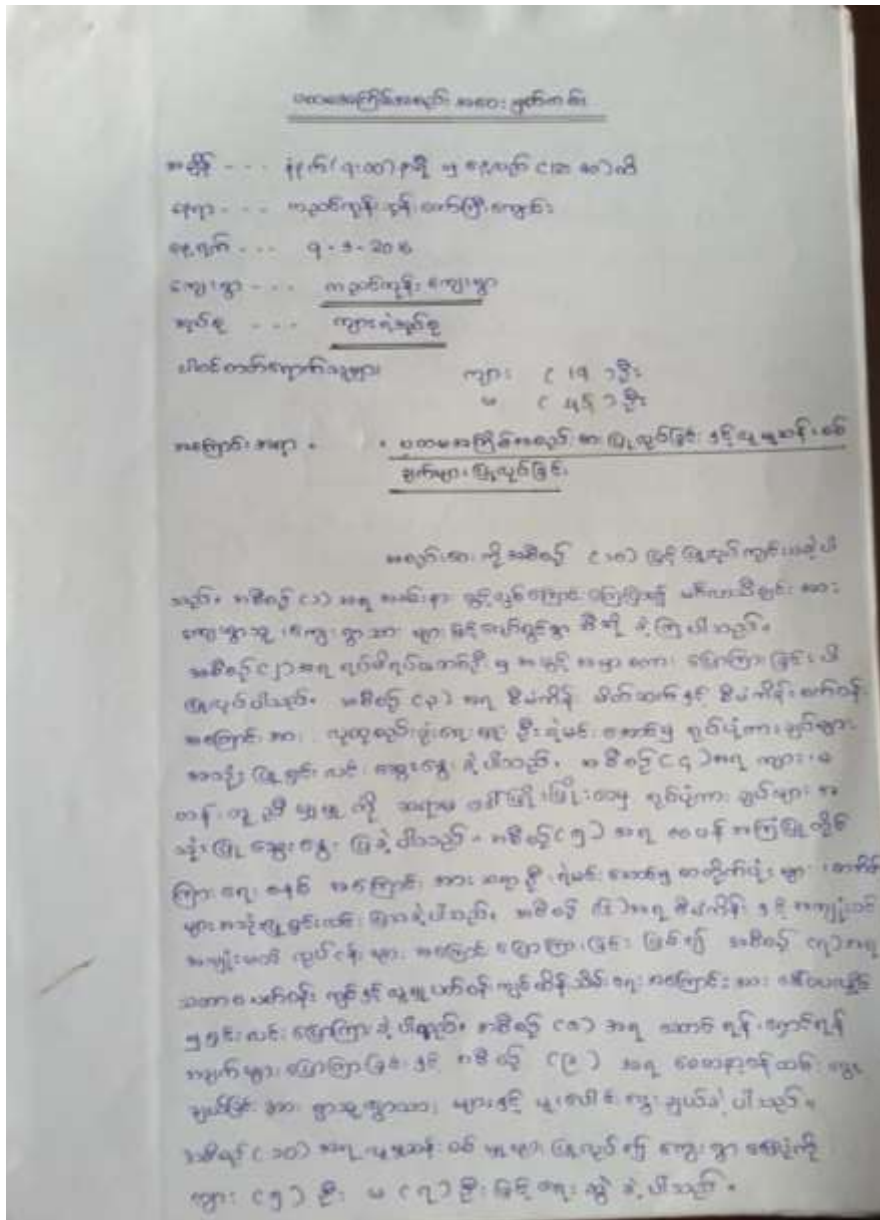 ပထမအကြိမ်အစည်းအဝေး မှတ်တမ်း
အချိန် - - - နံနက်(၇:၀၀)နာရီ မှ နေ့လယ်
နေရာ - - - ကညင်ကုန်း ဘုန်းတော်ကြီးကျောင်း
နေ့ရက် - - -
ကျေးရွာ - - - ကညင်ကုန်း ကျေးရွာ
အုပ်စု - - - အုပ်စု
ပါဝင်တက်ရောက်သူများ ကျား ( ၁၅ ) ဦး
မ ( ) ဦး
အကြောင်းအရာ။ ။ ပထမအကြိမ်အစည်းအဝေးပြုလုပ်ခြင်း နှင့် လူမှုဆန်းစစ်
ချက်များ ပြုလုပ်ခြင်း
အစည်းအဝေးကို အစီစဉ် (၁၀) ဖြင့် ပြုလုပ်ကျင်းပခဲ့ပါ
သည်။ အစီစဉ် (၁) အရ အခမ်းအနား ဖွင့်လှစ်ကြောင်း ကြေငြာ၍ အား
ကျေးရွာသူ၊ ကျေးရွာသား များဖြင့် သီဆို ခဲ့ကြပါသည်။
အစီစဉ် (၂) အရ ရပ်မိရပ်ဖတစ်ဦး မှ အဖွင့် အမှာစကား ပြောကြားခြင်း ကို
ပြုလုပ်ပါသည်။ အစီစဉ် (၃) အရ စီမံကိန်း မိတ်ဆက် နှင့် စီမံကိန်း
အကြောင်း အား လူထုစည်းရုံးရေးမှူး ဦးရဲမင်းအောင်မှ ရုပ်ပုံကားချပ်များ
အသုံးပြု ရှင်းလင်း ဆွေးနွေး ခဲ့ပါသည်။ အစီစဉ် (၄) အရ ကျား၊ မ
တန်းတူ ညီမျှမှု ကို ဆရာမ မှ ရုပ်ပုံကားချပ်များ အ
သုံးပြု ဆွေးနွေး ပြခဲ့ပါသည်။ အစီစဉ် (၅) အရ အကြံပြုတိုင်
ကြားရေး စနစ် အကြောင်း အား ဆရာဦးရဲမင်းအောင်မှ စာတိုက်ပုံး များ၊ စာအိတ်
များအသုံးပြုရှင်းလင်း ပြသခဲ့ပါသည်။ အစီစဉ် (၆) အရ စီမံကိန်း နှင့် အကျုံးဝင်
အကျုံးမဝင် လုပ်ငန်းများ အကြောင်း ပြောကြားခြင်း ဖြစ်၍ အစီစဉ် (၇) အရ
သဘာဝပတ်ဝန်းကျင်နှင့် လူမှုပတ်ဝန်းကျင်ထိန်းသိမ်းရေး အကြောင်း အား
မှ ရှင်းလင်း ပြောကြားခဲ့ပါသည်။ အစီစဉ် (၈) အရ ဆောင်ရန်၊ ရှောင်ရန်
အချက်များ ပြောကြားခြင်း နှင့် အစီစဉ် (၉) အရ စေတနာ့ဝန်ထမ်း ရွေး
ချယ်ခြင်း အား ရွာသူရွာသား များနှင့် ပူးပေါင်းရွေးချယ်ခဲ့ပါသည်။
အစီစဉ် (၁၀) အရ လူမှုဆန်းစစ် မှုများ ပြုလုပ်၍ ကျေးရွာ မြေပုံကို
ကျား (၅) ဦး မ (၇) ဦး ဖြင့် ရေးဆွဲ ခဲ့ပါသည်။